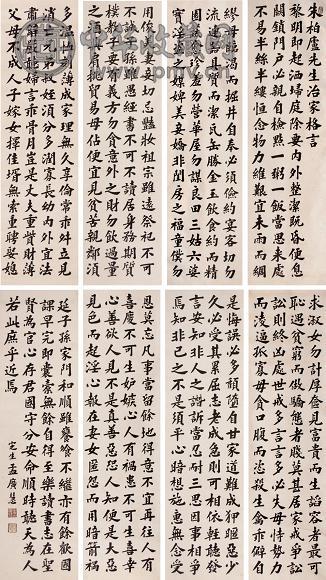 朱柏盧先生治家格言
黎明即起洒埽庭除要内外整潔既昏便息
關鎖門户必親自檢點一粥一飯當思來處
不易半絲半縷恒念物力維艱宜未雨而綢
繆毋臨渴而掘井自奉必須儉約宴客切勿
留連器具質而潔瓦缶勝金玉飲食約而精
園蔬愈珍羞勿營華屋勿謀良田三姑六婆
實淫盜之媒婢美妾嬌非閨房之福童僕勿
用俊美妻妾切忌豔妝祖宗雖遠祭祀不可
不誠子孫雖愚經書不可不讀居身務期質
樸教子要有義方勿貪意外之財勿飲過量
之酒與肩挑貿易毋佔便宜見貧苦親鄰須
多溫卹刻薄成家理無久享倫常乖舛立見
消亡兄弟叔姪須分多潤寡長幼内外宜法
肅辭嚴聽婦言乖骨肉豈是丈夫重貲財薄
父母不成人子嫁女擇佳壻無索重聘娶媳
求淑女勿計厚奩見富貴而生諂容者最可
恥遇貧窮而作驕態者賤莫甚居家戒爭訟
訟則終凶處世戒多言言多必失毋恃勢力
而凌逼孤寡毋貪口腹而恣殺生禽乖僻自
是悔誤必多頹墮自甘家道難成狎暱惡少
久必受其累屈志老成急則可相依輕聽發
言安知非人之譖訴當忍耐三思因事相爭
焉知非己之不是須平心暗想施惠無念受
恩莫忘凡事當留餘地得意不宜再往人有
喜慶不可生妬嫉心人有禍患不可生喜幸
心善欲人見不是真善惡恐人知便是大惡
見色而起淫心報在妻女匿怨而用暗箭禍
延子孫家門和順雖饔飧不繼亦有餘歡國
課早完即囊橐無餘自得至樂讀書志在聖
賢為官心存君國守分安命順時聽天為人
若此庶乎近焉
定生孟廣慧